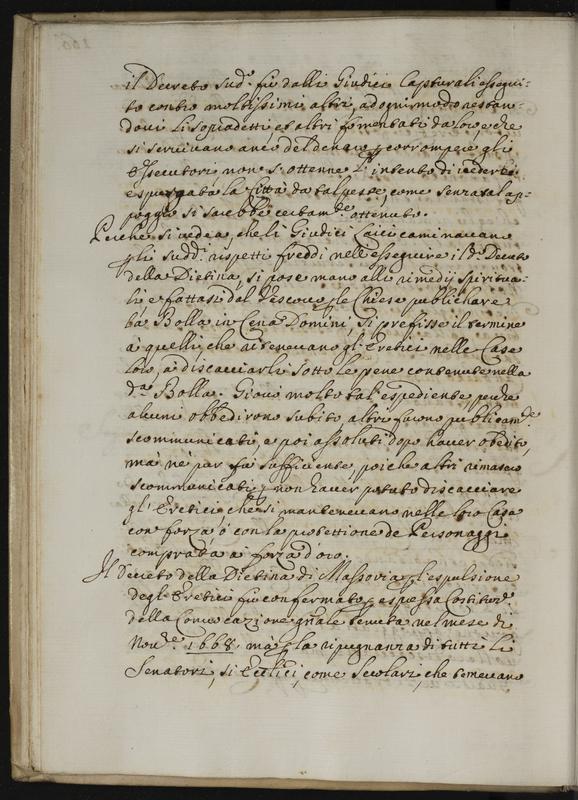 il Decreto sud.º fù dalli Giudici Capturali essequi-
to contro moltissimi altri, ad ogni modo restan-
dovi li sopradetti et altri fomentati da loro, e che
si servivano anco del denaro p corrompere gli
Essecutori non s'ottenne l'intento di vederte
espurgata la Città da tal peste, come senza tal ap-
poggio si sarebbe certam.te ottenuto.
Perche si vedea, che li Giudici Laici caminavano
p li sudd.i rispetti freddi nell'essequire il d.º Decreto
della Dietina, si pose mano alli rimedij spiritua-
li, e fattasi dal Vescovo p le Chiese publichare
la Bolla in Cena Domini, si prefisse il termine
à quelli, che ritenevano gl'Eretici nelle Case
loro, à discacciarli sotto le pene contenute nella
d.ª Bolla. Giovò molto tal espediente, perche
alcuni obbedirono subito, altri furono publicam.te
scommunicati, e poi assoluti dopo haver obedito,
mà nè pur fù sufficiente, poiche altri rimasero
scommunicati p non haver potuto discacciare
gl'Eretici che si mantenevano nelle loro Case
con forza, ò con la protettione de Personaggi
comprata a forza d'oro.
Il Decreto della Dietina di Massovia p l'espulsione
degl'Eretici fù confermato p espressa Costituz.e
della Convocazione gn'ale tenuta nel mese di
Nov.re 1668. mà p la ripugnanza di tutti li
Senatori, sì Eccl'ici, come Secolari, che temevano